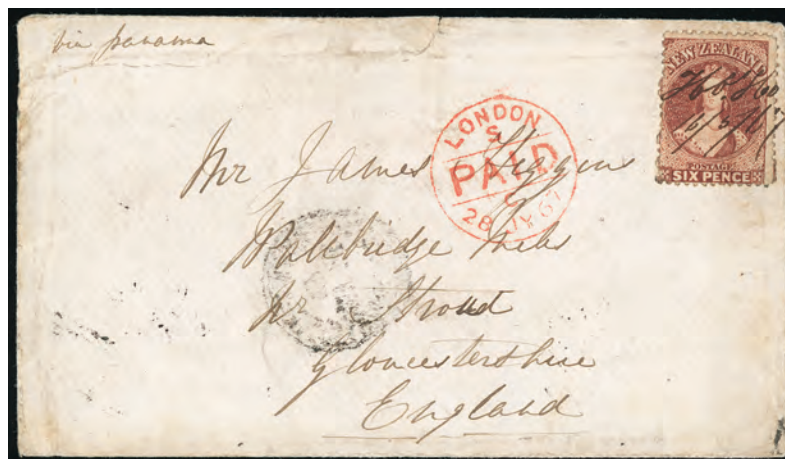 via panama
NEW ZEALAND
POSTAGE
SIX PENCE
LONDON
S
PAID
28 JY 67
Mr James Higgins
Wallbridge Mills
Nr Stroud
Gloucestershire
England